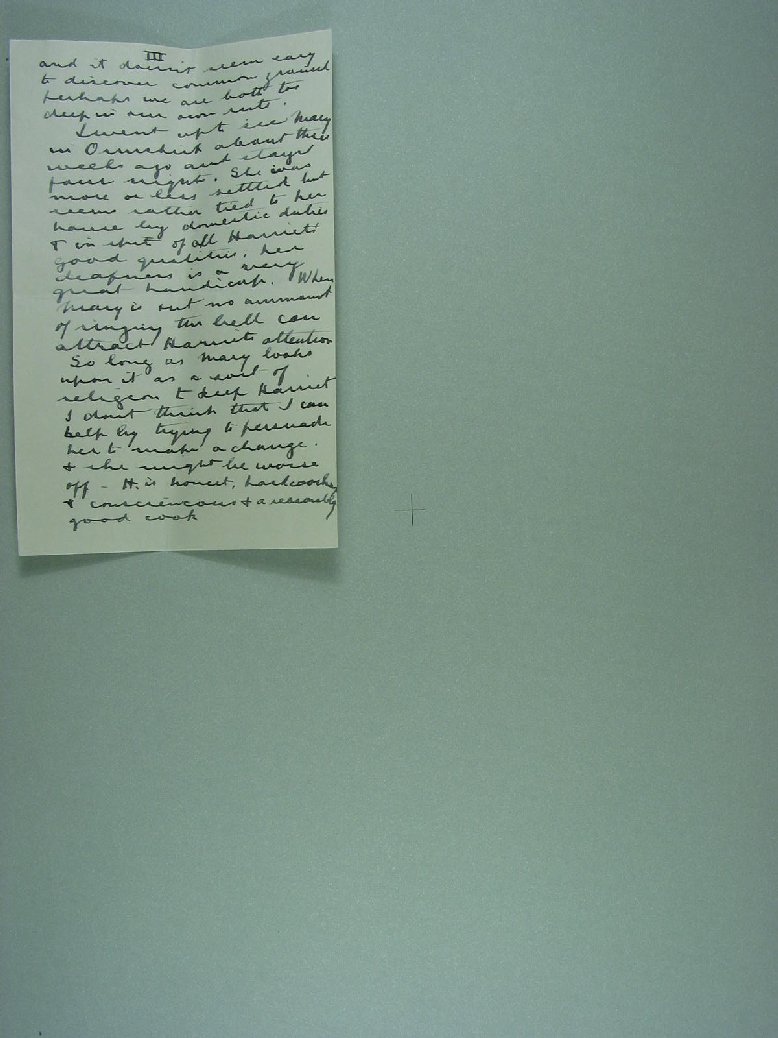 III
and it doesn't seem easy
to discover common ground
perhaps we are both too
deep in our own ruts.
I went up to see Mary
in Ormskirk about three
weeks ago and stayed
four nights. She was
more or less settled but
seems rather tied to her
house by domestic duties
& in spite of all Harriet's
good qualities, her
deafness is a very
great handicap. When
Mary is out no ammount
of ringing the bell can
attract Harriets attention
So long as Mary looks
upon it as a sort of
religion to keep Harriet
I don't think that I can
help by trying to persuade
her to make a change.
& she might be worse
off - H. is honest, hardworking
& consciencous & a reasonably
good cook